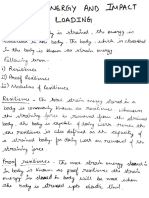 ENERGY AND IMPACT
LOADING
is strained, the energy is
in the body. The body, which is absorbed
in the body is known as strain energy
Following term -
i) Resilience
ii) Proof Resilience
iii) Modulus of Resilience
Resilience :- the total strain energy stored in a
body is commonly known as resilience. whenever
the straining force is removed from the strained
body, the body is capable of doing work. Hence the
the resilience is also defined as the capacity
of a strained body for doing work on removal of
the straining force.
Proof resilience :- the max strain energy stored in
body is known as proof resilience. the strain
energy stored in the body will be max when
the body is stressed upto elastic limit